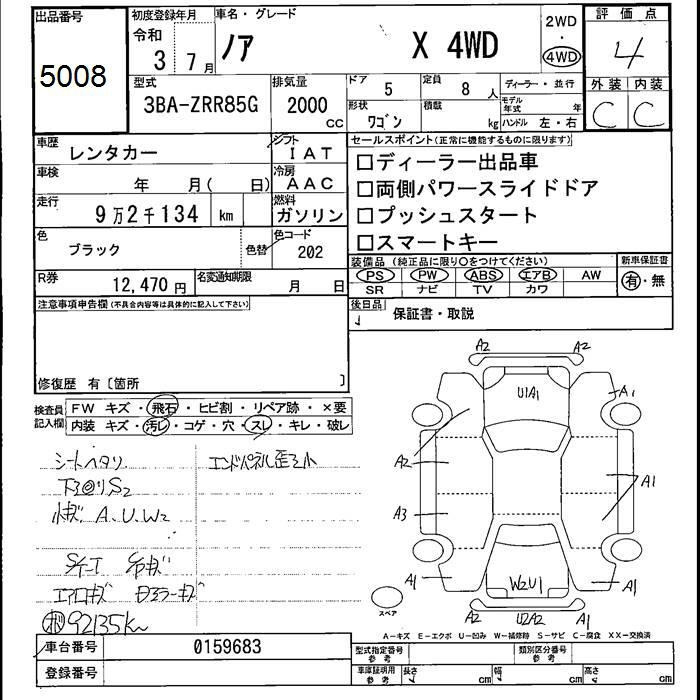 出品番号 5008
初度登録年月 令和 3 7月
車名・グレード ノア X 4WD
2WD ・ 4WD
評価点 4
外装 内装
C C
型式 3BA-ZRR85G
排気量 2000 CC
ドア 5
定員 8 人
ディーラー・並行
形状 ワゴン
積載 kg
モデル年式 年
ハンドル 左・右
車歴 レンタカー
シフト IAT
車検 年 月( 日)
冷房 AAC
走行 9万2千134 km
燃料 ガソリン
色 ブラック 色替
色コード 202
R券 12,470円
名変通知期限 月 日
セールスポイント(正常に機能するものに限ります)
□ディーラー出品車
□両側パワースライドドア
□プッシュスタート
□スマートキー
装備品 (純正品に限り〇をつけてください)
新車保証書
PS PW ABS エアB AW
有・無
SR ナビ TV カワ
後日品 保証書・取説
注意事項申告欄(不具合内容等は具体的に記入して下さい)
修復歴 有〔箇所 〕
検査員記入欄
FW キズ・飛石・ヒビ割・リペア跡・×要
内装 キズ・汚レ・コゲ・穴・スレ・キレ・破レ
シートヘタリ
エンドパネル歪ミ小
S2
小キズ A、U、W2
エアロキズ
92135km
A2 A2
U1A1
A1
A2
A3
A1
A1
W2U1
A1
A2 U2A2 A1
スペア
A-キズ E-エクボ U-凹み W-補修跡 S-サビ C-腐食 XX-交換済
車台番号 0159683
登録番号
型式指定番号 参考
類別区分番号 参考
車庫証明用 参考
長さ cm
幅 cm
高さ cm